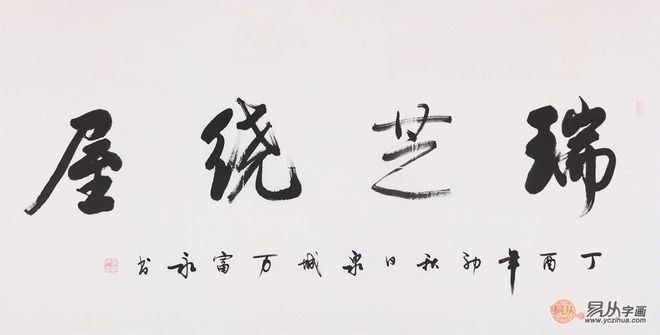 瑞芝绕屋
丁酉年初秋日泉城万富永书
易从字画
www.yczihua.com